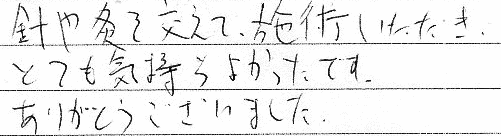 針や灸を交えて、施術いただき、
とても気持ちよかったです。
ありがとうございました。